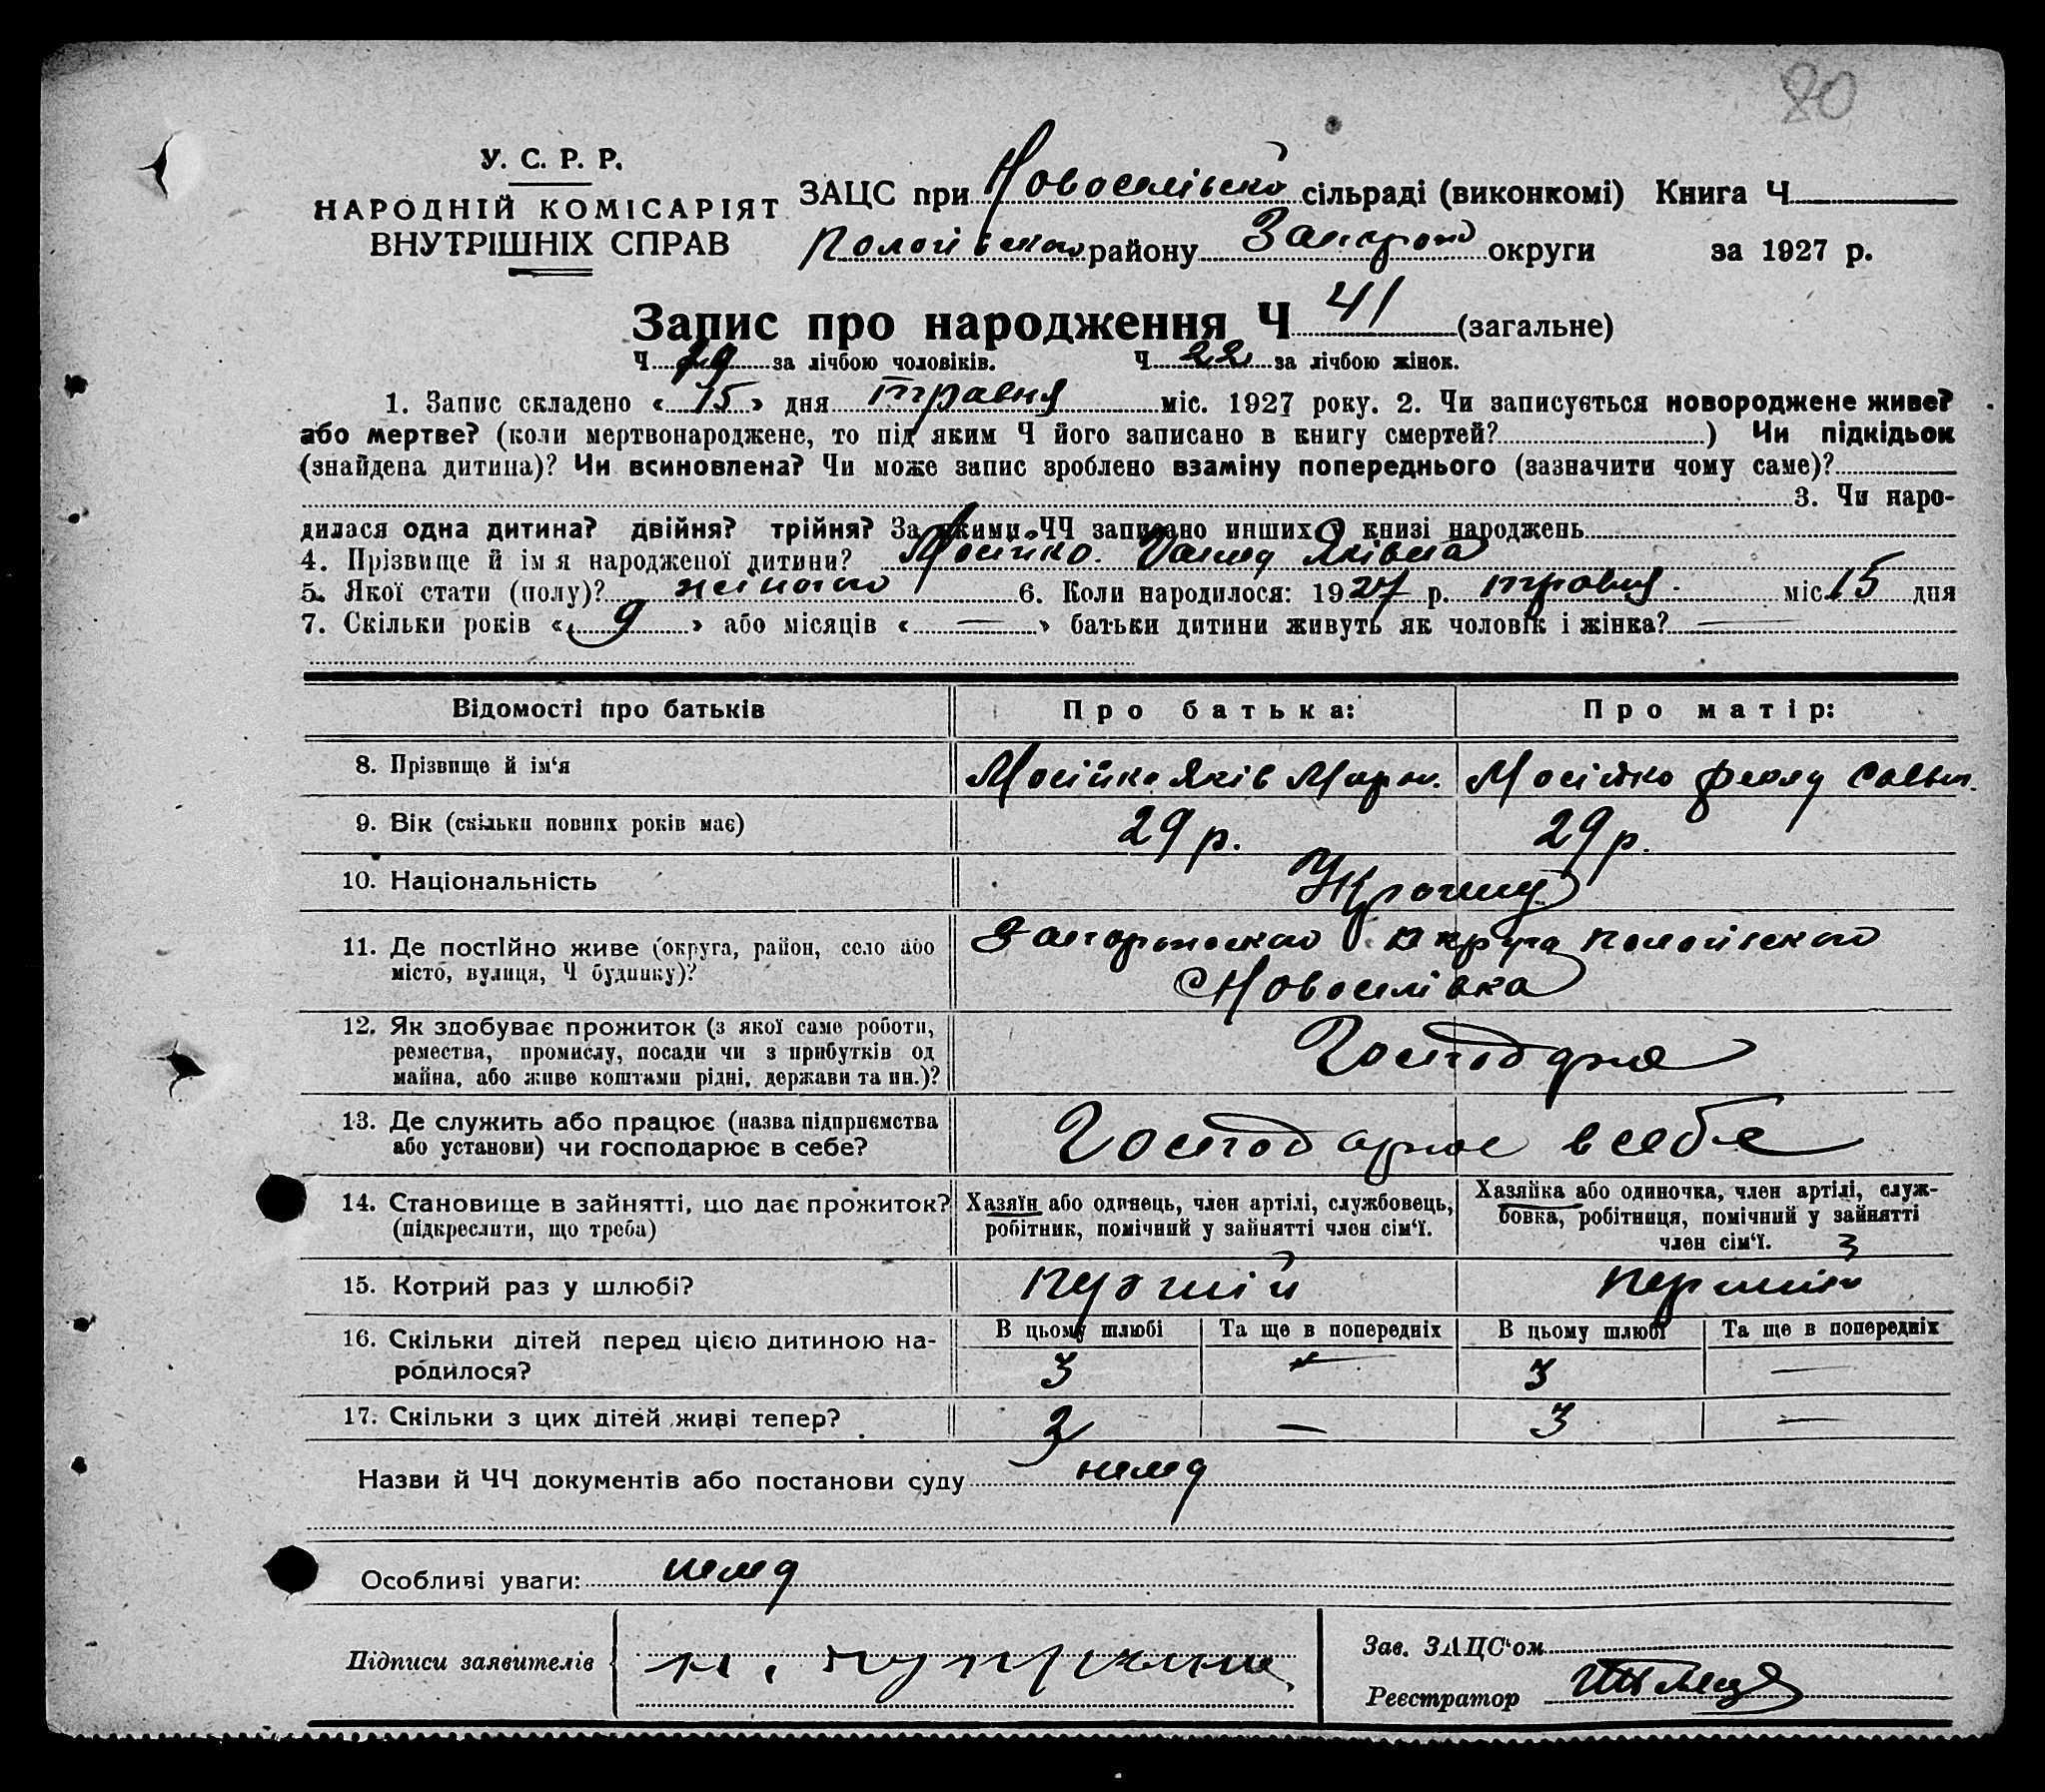 80
У. С. Р. Р.
НАРОДНІЙ КОМІСАРІЯТ
ВНУТРІШНІХ СПРАВ
ЗАЦС при Новоселівско сільраді (виконкомі) Книга Ч
району Запорож округи за 1927 р.
Запис про народження Ч 41 (загальне)
Ч за лічбою чоловіків. Ч 22 за лічбою жінок.
1. Запис складено « 15 » дня травня міс. 1927 року. 2. Чи записується новороджене живе?
або мертве? (коли мертвонароджене, то під яким Ч його записано в книгу смертей? ) Чи підкідьок
(знайдена дитина)? Чи всиновлена? Чи може запис зроблено взаміну попереднього (зазначити чому саме)?
3. Чи наро-
дилася одна дитина? двійня? трійня? За якими ЧЧ записано инших у книзі народжень
4. Прізвище й ім я народженої дитини? Мосійко Яківна
5. Якої стати (полу)? 6. Коли народилося: 1927 р. травня міс. 15 дня
7. Скільки років « 9 » або місяців « — » батьки дитини живуть як чоловік і жінка? —
Відомості про батьків Про батька: Про матір:
8. Прізвище й ім‘я Мосійко Яків Мосійко
9. Вік (скільки повних років має) 29 р. 29 р.
10. Національність
11. Де постійно живе (округа, район, село або
місто, вулиця, Ч будинку)?
округа
Новоселівка
12. Як здобуває прожиток (з якої саме роботи,
ремества, промислу, посади чи з прибутків од
майна, або живе коштами рідні, держави та ин.)?
13. Де служить або працює (назва підприємства
або установи) чи господарює в себе?
Господарює в себе
14. Становище в зайнятті, що дає прожиток?
(підкреслити, що треба)
Хазяїн або одинець, член артілі, службовець,
робітник, помічний у зайнятті член сім‘ї.
Хазяйка або одиночка, член артілі, служ-
бовка, робітниця, помічний у зайнятті
член сім‘ї. 3
15. Котрий раз у шлюбі?
16. Скільки дітей перед цією дитиною на-
родилося?
В цьому шлюбі Та ще в попередніх В цьому шлюбі Та ще в попередніх
3 — 3 —
17. Скільки з цих дітей живі тепер? 2 — 3 —
Назви й ЧЧ документів або постанови суду нема
Особливі уваги: нема
Підписи заявителів
Зав. ЗАЦС‘ом
Реєстратор